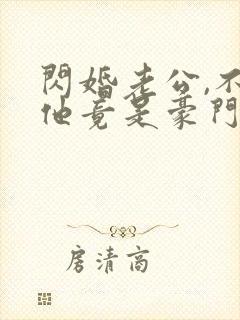 閃婚老公,不
他竟是豪門
房清高